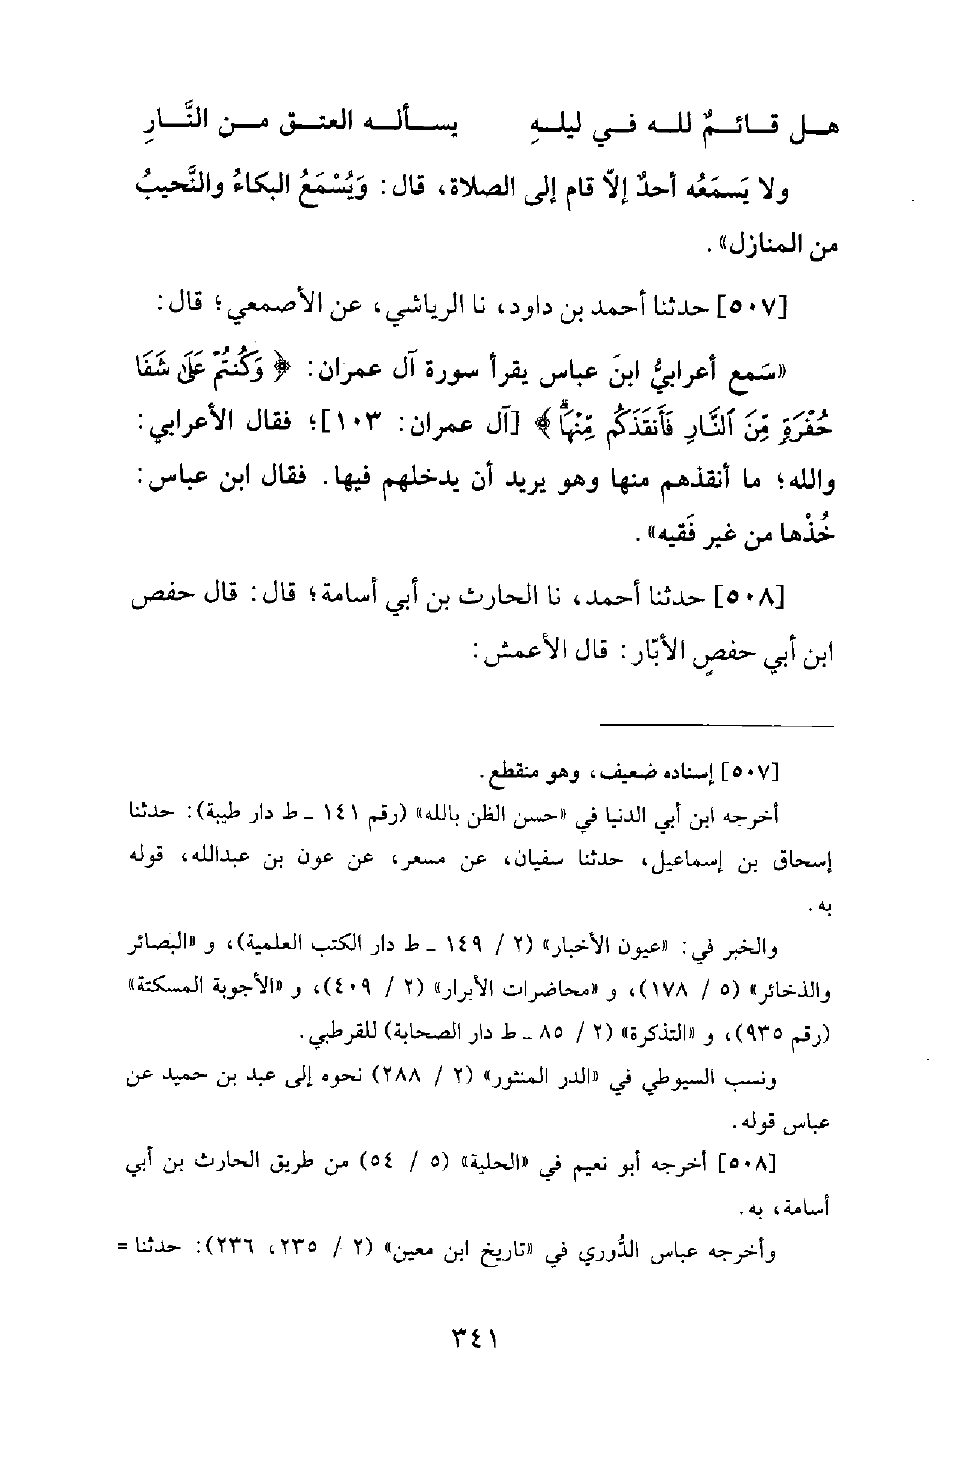 هـل قـائـمٌ لله فـي ليلـهِ يسـألـه العتـق مـن النَّـارِ
ولا يَسمَعُه أحدٌ إلاّ قام إلى الصلاة، قال: وَيُسْمَعُ البكاءُ والنَّحيبُ
من المنازل».
[٥٠٧] حدثنا أحمد بن داود، نا الرياشي، عن الأصمعي؛ قال:
«سَمع أعرابيٌّ ابنَ عباس يقرأ سورة آل عمران: ﴿ وَكُنتُمْ عَلَىٰ شَفَا
حُفْرَةٍ مِّنَ ٱلنَّارِ فَأَنقَذَكُم مِّنْهَاۗ ﴾ [آل عمران: ١٠٣]؛ فقال الأعرابي:
والله؛ ما أنقذهم منها وهو يريد أن يدخلهم فيها. فقال ابن عباس:
خُذْها من غير فَقيه».
[٥٠٨] حدثنا أحمد، نا الحارث بن أبي أسامة؛ قال: قال حفص
ابن أبي حفصٍ الأبّار: قال الأعمش:
[٥٠٧] إسناده ضعيف، وهو منقطع.
أخرجه ابن أبي الدنيا في «حسن الظن بالله» (رقم ١٤١ ـ ط دار طيبة): حدثنا
إسحاق بن إسماعيل، حدثنا سفيان، عن مسعر، عن عون بن عبدالله، قوله
به.
والخبر في: «عيون الأخبار» (٢ / ١٤٩ ـ ط دار الكتب العلمية)، و «البصائر
والذخائر» (٥ / ١٧٨)، و «محاضرات الأبرار» (٢ / ٤٠٩)، و «الأجوبة المسكتة»
(رقم ٩٣٥)، و «التذكرة» (٢ / ٨٥ ـ ط دار الصحابة) للقرطبي.
ونسب السيوطي في «الدر المنثور» (٢ / ٢٨٨) نحوه إلى عبد بن حميد عن
عباس قوله.
[٥٠٨] أخرجه أبو نعيم في «الحلية» (٥ / ٥٤) من طريق الحارث بن أبي
أسامة، به.
وأخرجه عباس الدُّوري في «تاريخ ابن معين» (٢ / ٢٣٥، ٢٣٦): حدثنا =
٣٤١